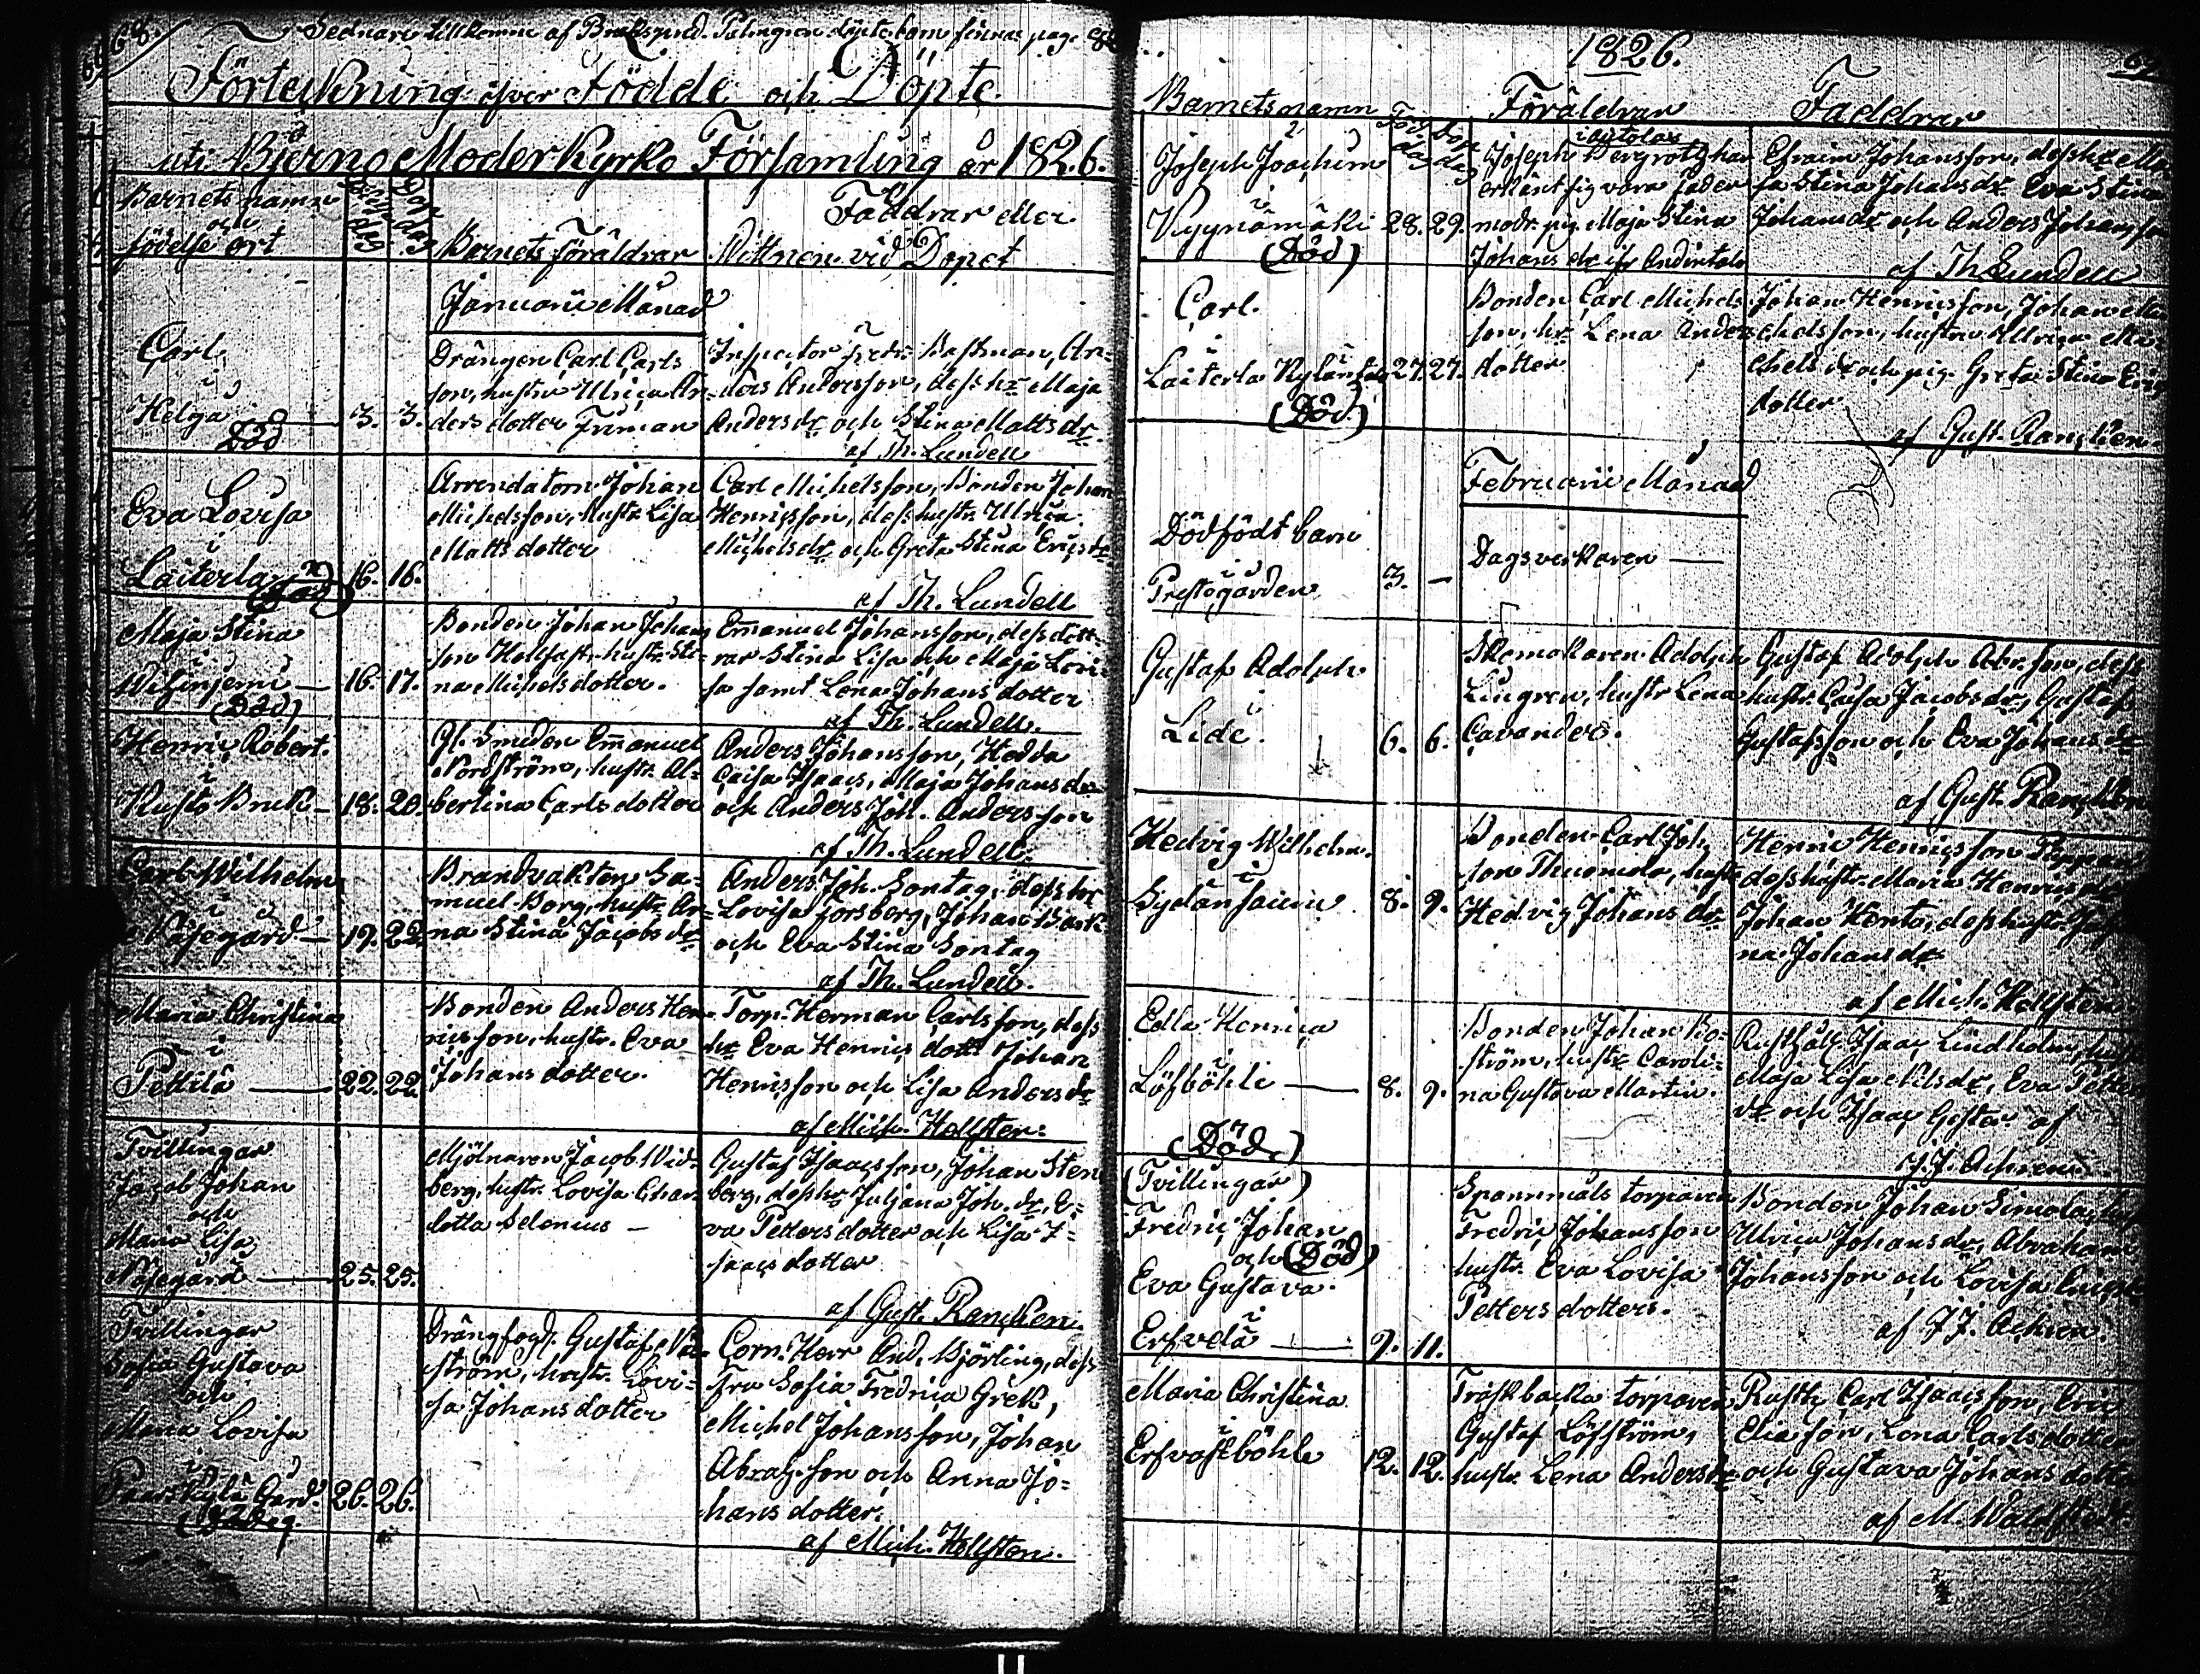 68.
Sednare tillkomne af Bruksquad. Palmgren döpte barn finnas pag. 82
Förtekning öfver Födde och Döpte
uti Bjerno Moder Kyrko Församling år 1826.
Barnets namn
och
födelse ort
Födelse dag
Dop dag
Barnets föräldrar
Faddrar eller
Vittnen vid Dopet
Januarii Månad
Carl
i
Helga 3. 3.
Död
Drängen Carl Carls
son, hustru Ulrica An-
ders dotter Friman
Inspector Fredr. Bastman, An-
ders Andersson, dess hr Maja
Anders dr och Stina Matts dr
af Th. Lundell
Eva Lovisa
i
Laiterla 16. 16.
(Död)
Arrendatorn Johan
Michelsson, hustr. Lisa
Matts dotter
Carl Michelsson, Bonden Johan
Henricsson, dess hustr. Ulrica
Michelsdr och Greta Stina Erics dr
af Th. Lundell
Maja Stina
i
16. 17.
(Död)
Bonden Johan Johans
son Hollfast, hustr. Sti-
na Michels dotter.
Emanuel Johansson, dess dött-
rar Stina Lisa och Maja Lovi-
sa samt Lena Johans dotter
af Th. Lundell.
Henric Robert.
i
Kusto Bruk 18. 20.
Gl. Smeden Emanuel
Nordström, hustr. Al-
bertina Carls dotter
Anders Johansson, Hedda
Caisa Isaacs, Maja Johans dr
och Anders Joh. Andersson
af Th. Lundell.
Carl Wilhelm
i
Näsegård 19. 22.
Brandvakten Sa-
muel Borg, hustr. An-
na Stina Jacobs dr
Anders Joh. Sontag, dess hr
Lovisa Forsberg, Johan Bark
och Eva Stina Sontag
af Th. Lundell.
Maria Christina
i
Pettilä 22. 22.
Bonden Anders Hen-
ricsson, hustr. Eva
Johans dotter.
Torp. Herman Carlsson, dess
hr Eva Henrics dott. Johan
Henricsson och Lisa Anders dr
af Mich. Hollsten.
Tvillingar
Jacob Johan
och
Maria Lisa
Näsegård 25. 25.
Mjölnaren Jacob Wid-
berg, hustr. Lovisa Char-
lotta Selenius
Gustaf Isaacsson, Johan Sten
berg, dess hr Juljana Joh. dr, E-
va Petters dotter och Lisa I-
saacs dotter
af Gust. Rancken.
Tvillingar
Sofia Gustava
och
Maria Lovisa
i
Gård. 26. 26.
Drängfogd. Gustaf
ström, hustr. Lovi-
sa Johans dotter
Corn. Herr And. Björling, dess
fru Sofia Fredrica Grek,
Michel Johansson, Johan
Abrah. son och Anna Jo-
hans dotter.
af Mich. Hollsten.
1826.
69
Barnets namn
Föd. dag
Dop dag
Föräldrar
Faddrar
Joseph Joachim
i
Kyynämäki 28. 29.
(Död)
Joseph Bergroth har
erkänt sig vara fader
modr. pig. Maja Stina
Johans dr ifr. Anderstals
Efraim Johansson, dess hr Ma-
ja Stina Johans dr Eva Stina
Johans dr och Anders Johansson
af Th Lundell
Carl.
i
Laiterla Nylands 27. 27.
(Död)
Bonden Carl Michels
son, hr Lena Anders
dotter
Johan Henricsson, Johan Mi-
chelsson, hustru Ulrica Mi-
chels dr och pig. Greta Stina Erics
dotter
af Gust. Rancken.
Februarii Månad
Dödfödt barn
i
Prestegården 3. —
Dagsverkaren
Gustaf Adolph
i
Lide. 6. 6.
Skomakaren Adolph
Liugren, hustr Lena
Cavander.
Gustaf Adolph Abr. son, dess
hustr. Caisa Jacobs dr, Gustaf
Gustafsson och Eva Johans dr
af Gust. Rancken
Hedvig Wilhelm.
i
8. 9.
Bonden Carl Joh.
son hustr.
Hedvig Johans dr
Henric Henricsson
dess hustr. Maria Henrics dr
Johan Hento, dess hustr.
na Johans dr
af Mich. Hollsten
Edla Henrica
i
Löfböhle 8. 9.
(Död.)
Bonden Johan Bo-
ström, hustr Caroli-
na Gustava Martin.
Rusthåll. Isaac Lindholm, hustr
Maja Lisa Nilsdr, Eva Petters
dr och Isaac Gustav. af
J. J. Achren
(Tvillingar)
Fredric Johan
och (Död)
Eva Gustava.
i
Erfvelä 9. 11.
Spannmåls torparen
Fredric Johansson
hustr. Eva Lovisa
Petters dotter.
Bonden Johan Simola, hustr
Ulrica Johans dr, Abraham
Johansson och Lovisa
af J J. Achren.
Maria Christina
i
Erfvastböhle 12. 12.
Träskbacka torparen
Gustaf Löfström,
hustr. Lena Anders dr
Rusth. Carl Isaacsson, Eric
Eliasson, Lena Carls dotter
och Gustava Johans dotter
af M. Wahlstedt.